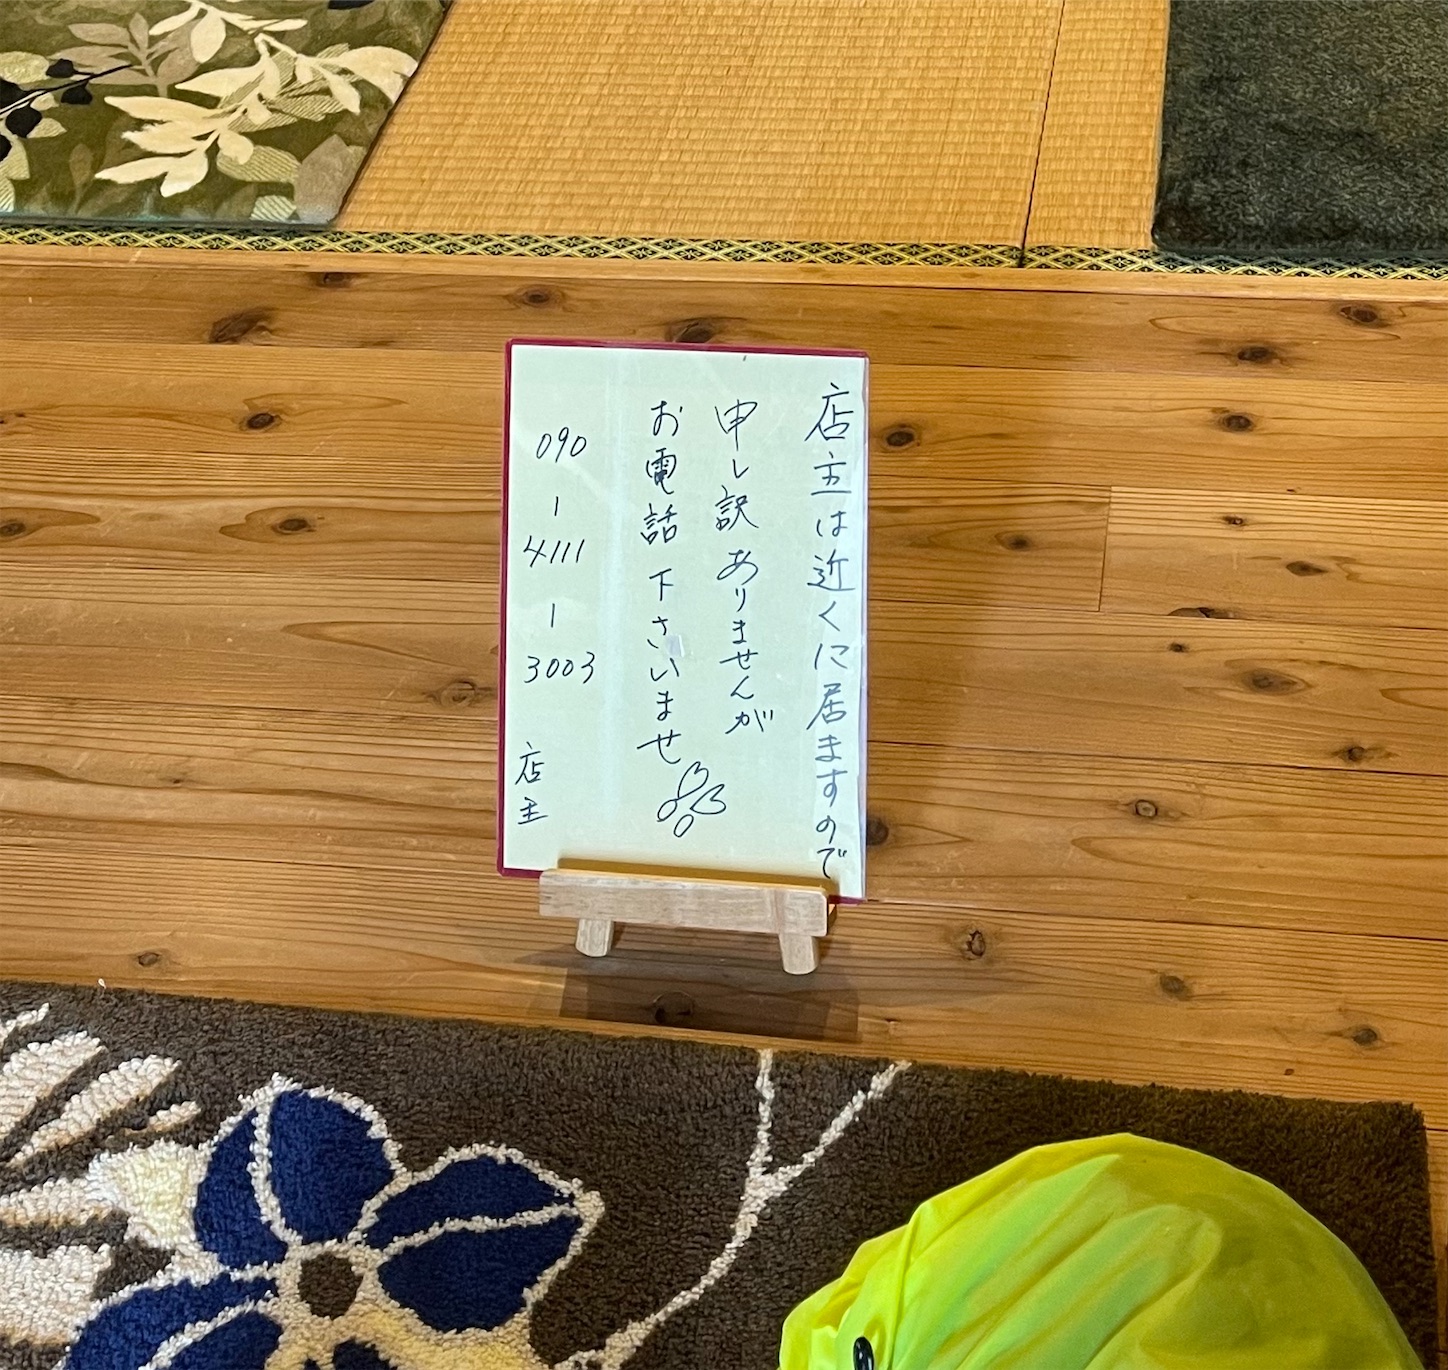 店主は近くに居ますので
申し訳ありませんが
お電話下さいませ
090-4111-3003
店主